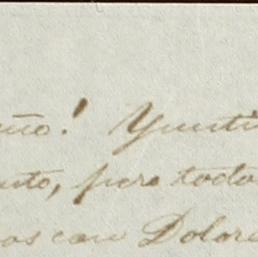 ño! Yunti
nto, pero todo
os con Dolore